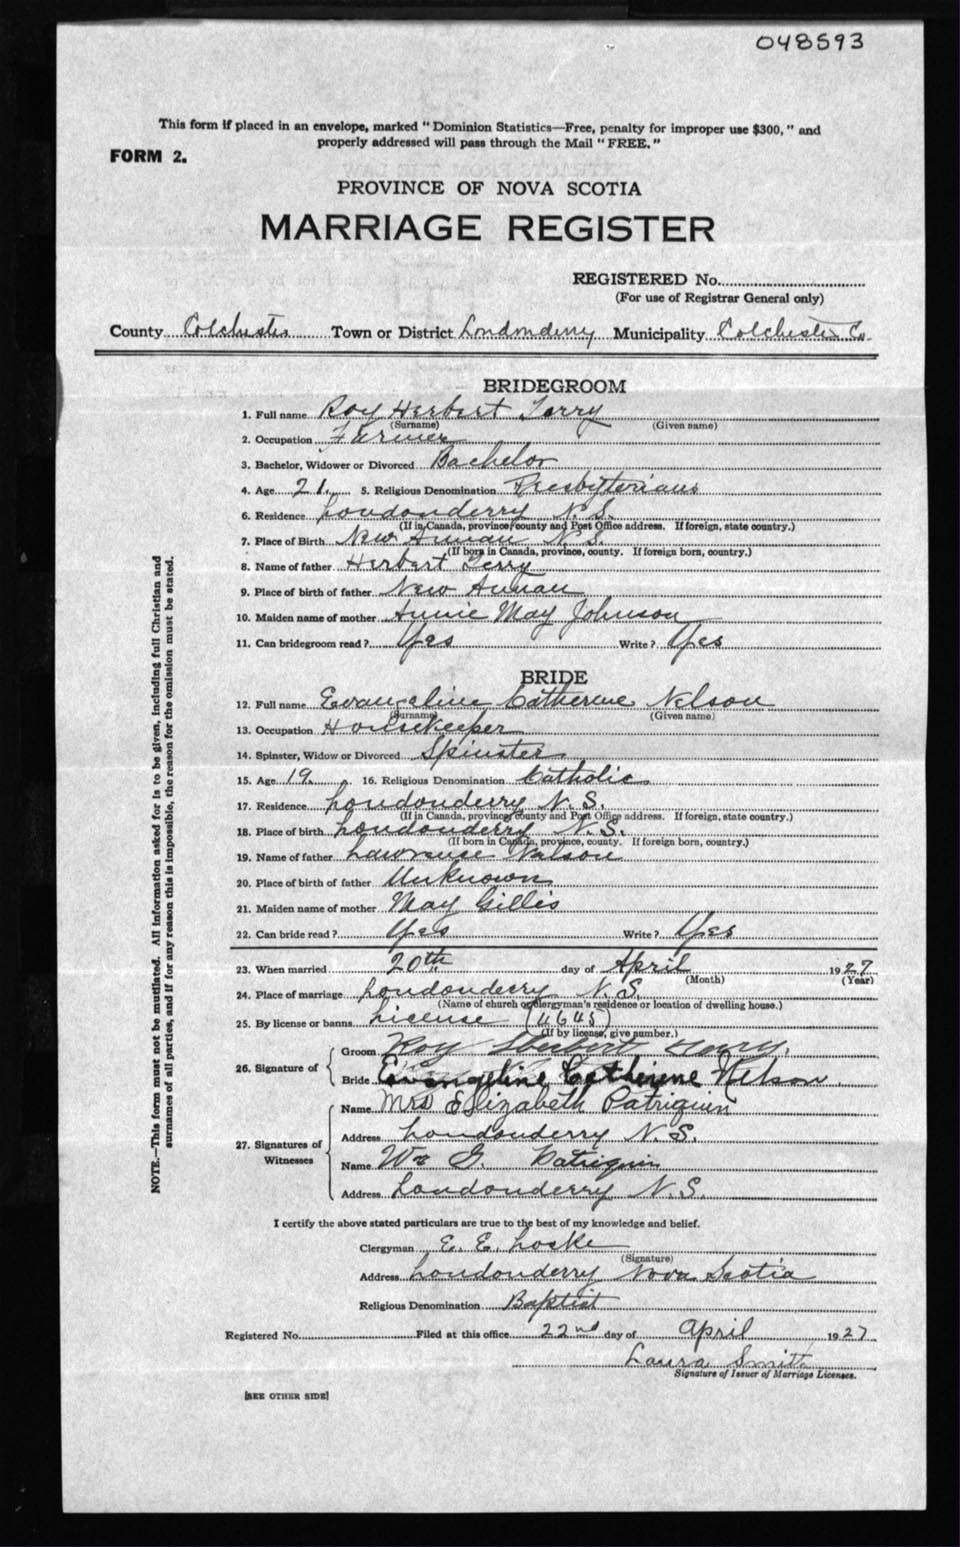 048593
This form if placed in an envelope, marked "Dominion Statistics—Free, penalty for improper use $300," and
properly addressed will pass through the Mail "FREE."
FORM 2.
PROVINCE OF NOVA SCOTIA
MARRIAGE REGISTER
REGISTERED No.
(For use of Registrar General only)
County Colchester Town or District Londonderry Municipality Colchester Co.
BRIDEGROOM
1. Full name Roy Herbert Terry
(Surname) (Given name)
2. Occupation Farmer
3. Bachelor, Widower or Divorced Bachelor
4. Age 21. 5. Religious Denomination Presbyterians
6. Residence Londonderry N.S.
(If in Canada, province, county and Post Office address. If foreign, state country.)
7. Place of Birth New Annan N.S.
(If born in Canada, province, county. If foreign born, country.)
8. Name of father Herbert Terry
9. Place of birth of father New Annan
10. Maiden name of mother Annie May Johnson
11. Can bridegroom read? Yes Write? Yes
BRIDE
12. Full name Evangeline Catherene Nelson
(Surname) (Given name)
13. Occupation Housekeeper
14. Spinster, Widow or Divorced Spinster
15. Age 19. 16. Religious Denomination Catholic
17. Residence Londonderry N.S.
(If in Canada, province, county and Post Office address. If foreign, state country.)
18. Place of birth Londonderry N.S.
(If born in Canada, province, county. If foreign born, country.)
19. Name of father Lawrence Nelson
20. Place of birth of father Unknown
21. Maiden name of mother May Gillis
22. Can bride read? Yes Write? Yes
23. When married 20th day of April 1927
(Month) (Year)
24. Place of marriage Londonderry N.S.
(Name of church or clergyman's residence or location of dwelling house.)
25. By license or banns License (4645)
(If by license, give number.)
26. Signature of
Groom Roy Herbert Terry.
Bride Evangeline Catherene Nelson.
27. Signatures of Witnesses
Name Mrs Elizabeth Patriquin
Address Londonderry N.S.
Name Wm G. Patriquin
Address Londonderry N.S.
I certify the above stated particulars are true to the best of my knowledge and belief.
Clergyman E. E. Locke
(Signature)
Address Londonderry Nova Scotia
Religious Denomination Baptist
Registered No. Filed at this office 22nd day of April 1927
Laura Smith
Signature of Issuer of Marriage Licenses.
[SEE OTHER SIDE]
NOTE.—This form must not be mutilated. All information asked for is to be given, including full Christian and
surnames of all parties, and if for any reason this is impossible, the reason for the omission must be stated.